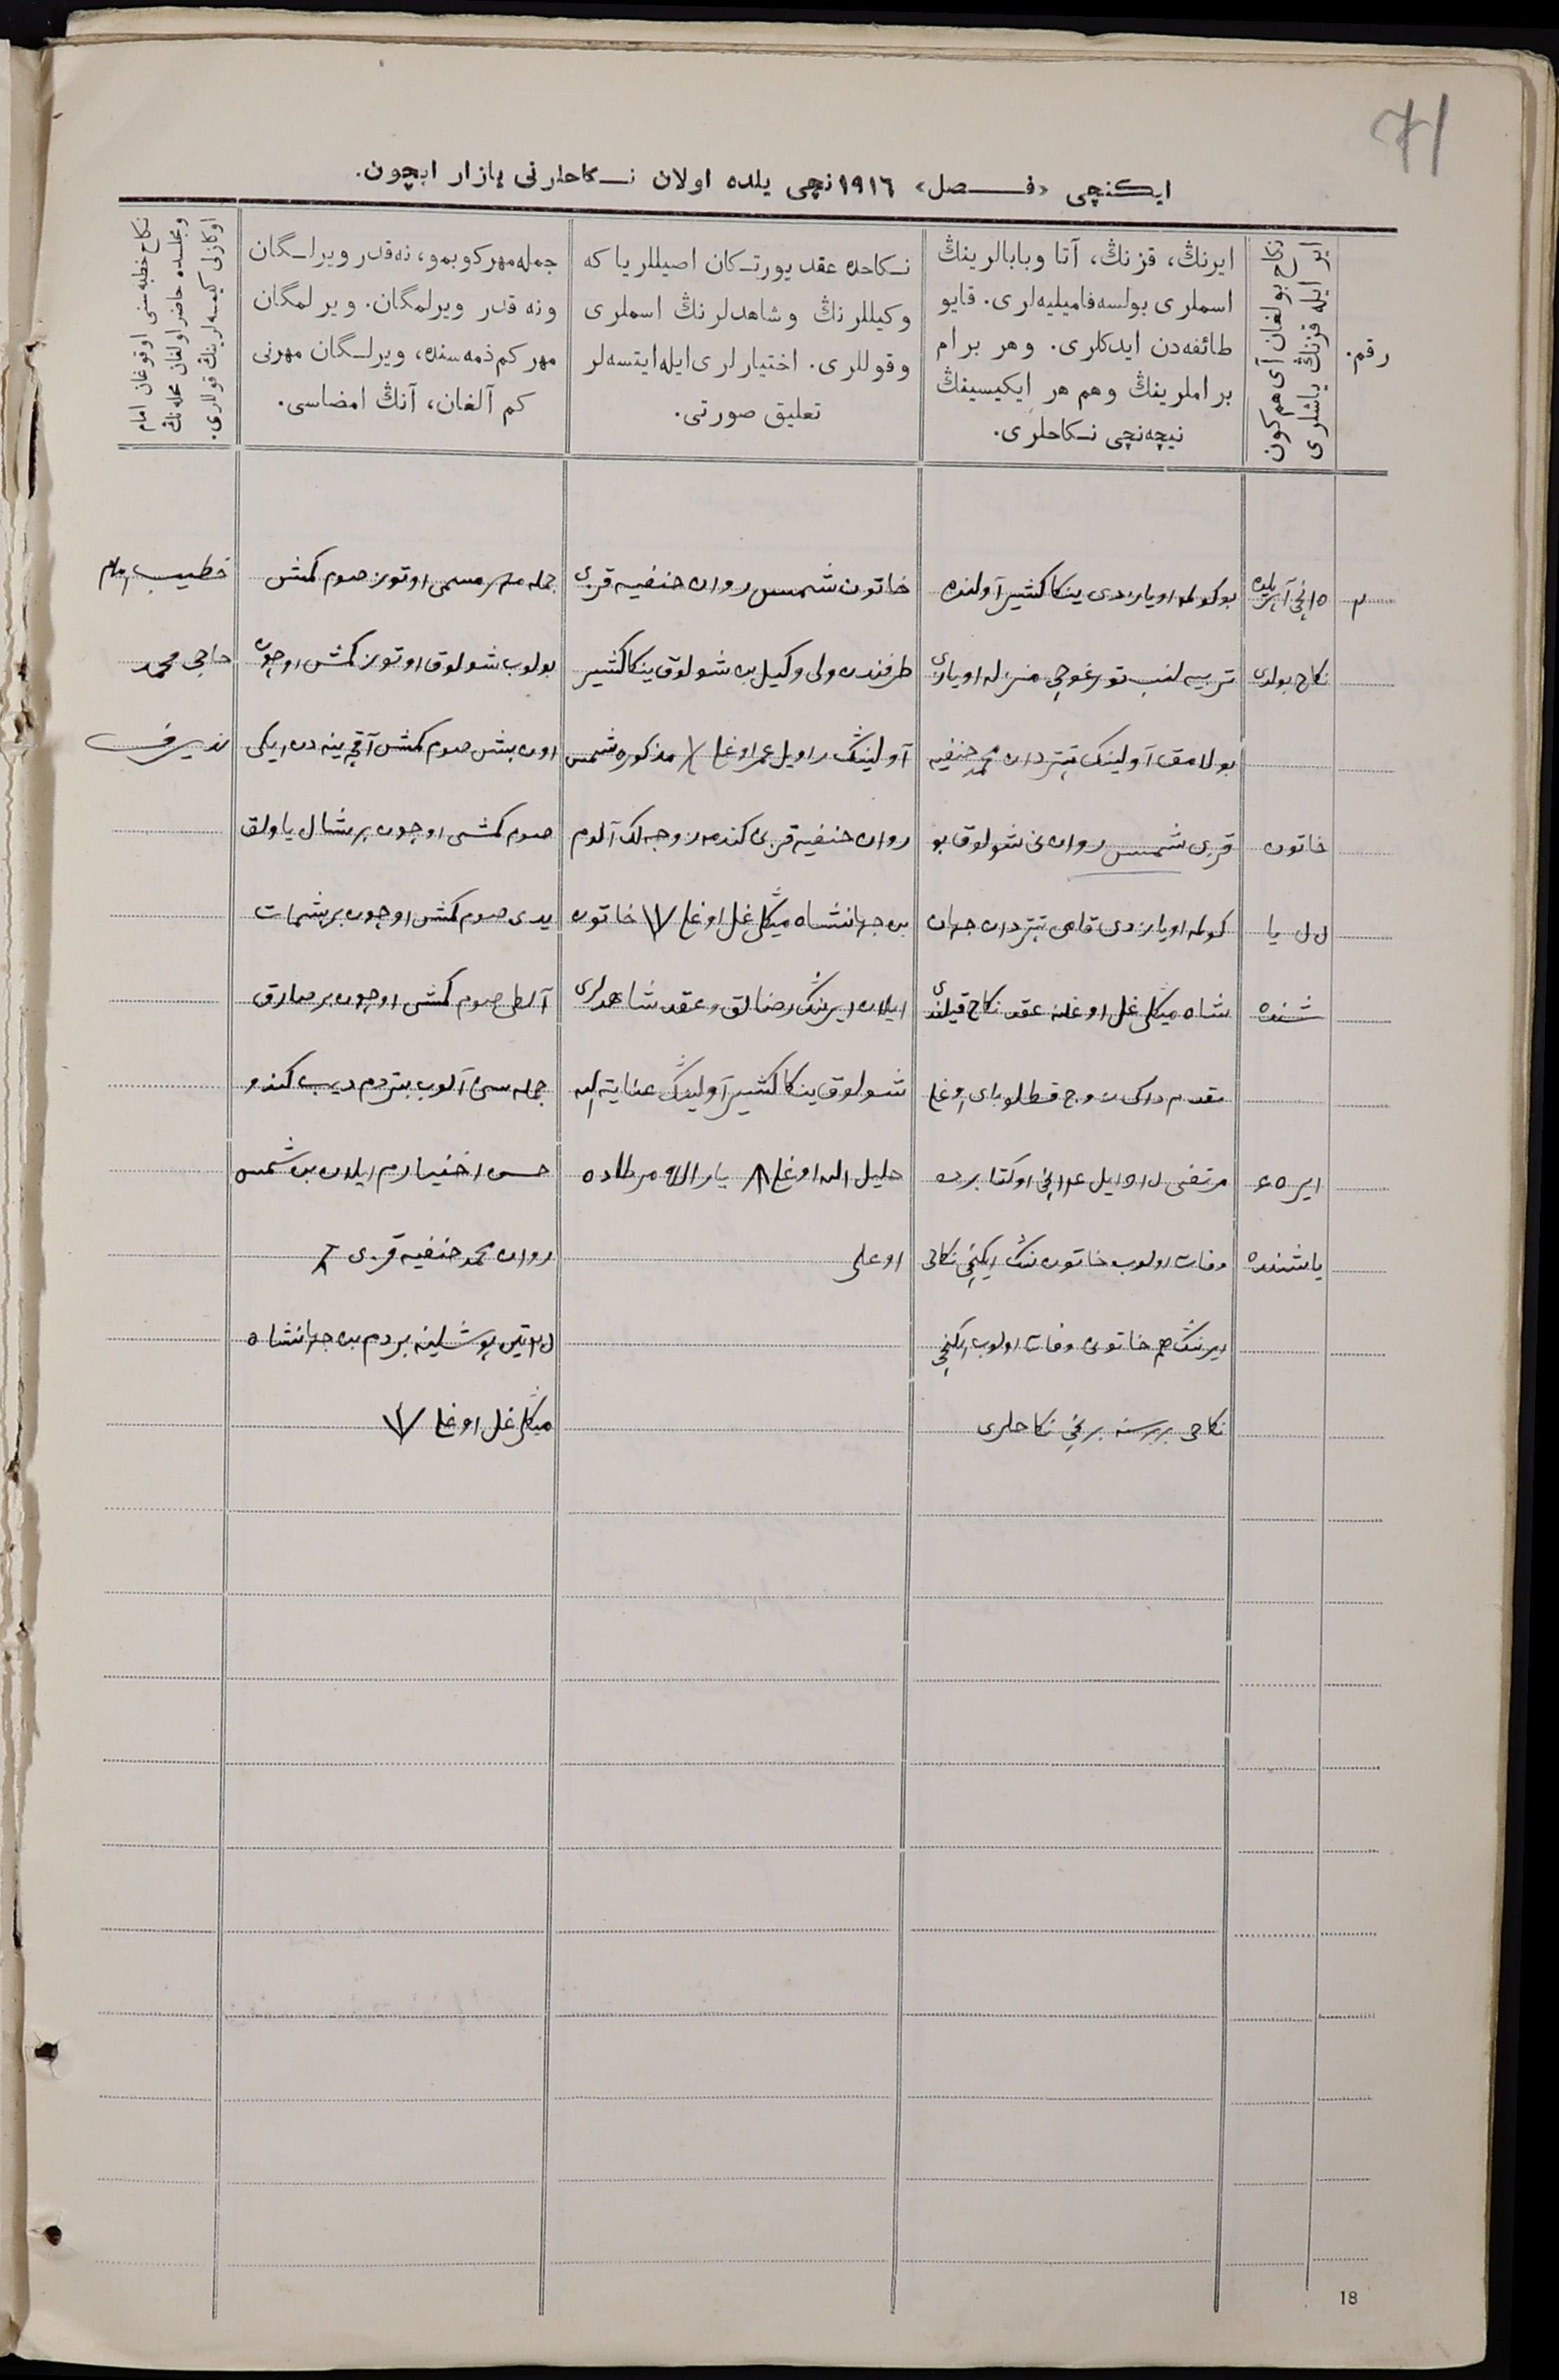 71
ایكنچی «فصل» ١٩١٦ نچی یلده اولان نكاحلرنی یازار ایچون.
رقم.
نكاح بولغان آی هم كون
ایر ایله قزنڭ یاشلری
ایرنڭ، قزنڭ، آتا وبابالرینڭ
اسملری بولسه فامیلیه‌لری. قایو
طائفه‌دن ایدكلری. وهر برام
براملرینڭ وهم هر ایكیسینڭ
نیچه‌نچی نكاحلری.
نكاحده عقد یورتكان اصیللر یا كه
وكیللرنڭ وشاهدلرنڭ اسملری
وقوللری. اختیارلری ایله ایتسه‌لر
تعلیق صورتی.
جمله مهر كوبمو، نه‌قدر ویرلگان
ونه قدر ویرلمگان. ویرلمگان
مهر كم ذمه‌سنده، ویرلگان مهرنی
كم آلغان، آنڭ امضاسی.
نكاح خطبه‌سنی اوقوغان امام
ومجلسده حاضر اولغان محله‌نڭ
اوكازلی كیمسه‌لرینڭ قوللری.
نكاح بولدی
خاتون
یا
شنده
ایر ٤٥
یاشنده
بوكولمه اویازدی ینكا كشیر آولنده
تربیه‌لنب تورغوچی منزله اویازی
بولامق آولینك تپتردان محمد حنفیه
قزی شمس روان نی شولوق بو
كولمه اویازدی تپتردان جهان
شاه میكلی غل اوغلنه عقد نكاح قیلندی
مقدم زوج قطلوبای اوغلی
وفات اولوب خاتون ننك ایكنچی نكاحی
ایرننك هم خاتونی وفات اولوب ایكنچی
نكاحی بربرسنه برنچی نكاحلری
خاتون شمس روان حنفیه قزی
طرفندن ولی وكیل بن شولوق ینكا كشیر
آولیننك عمر اوغلی مذكوره شمس
روان حنفیه قزی كندمه زوجه‌لك آلدم
بن جهانشاه میكلی غل اوغلی خاتون
ایلان ایرننك رضالق وعقد شاهدلری
شولوق ینكا كشیر آولیننك عنایة الله
خلیل الله اوغلی
اوغلی
جمله مهر مسمی اوتوز صوم كمش
بولوب شولوق اوتوز كمش اوچون
اون بش صوم كمش آقچینه دن ایكی
صوم كمش اوچون بر شال یاولق
یدی صوم كمش اوچون بر
آلطی صوم كمش اوچون بر صارق
جمله سن آلوب بتردم دیب كندو
حسن اختیارم ایلان بن شمس
روان محمد حنفیه قزی
بردم بن جهانشاه
میكلی غل اوغلی
خطیب امام
حاجی محمد
18